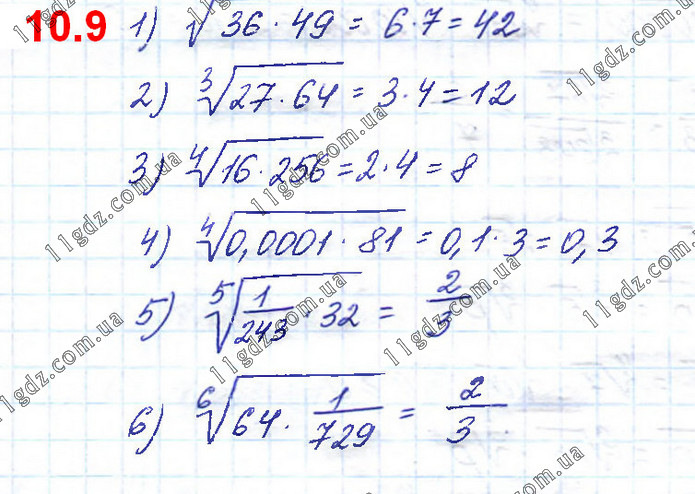 10.9 1) √36·49 = 6·7 = 42
2) ³√27·64 = 3·4 = 12
3) ⁴√16·256 = 2·4 = 8
4) ⁴√0,0001·81 = 0,1·3 = 0,3
5) ⁵√1/243·32 = 2/3
6) ⁶√64·1/729 = 2/3
11gdz.com.ua
11gdz.com.ua
11gdz.com.ua
11gdz.com.ua
11gdz.com.ua
11gdz.com.ua
11gdz.com.ua
11gdz.com.ua
11gdz.com.ua